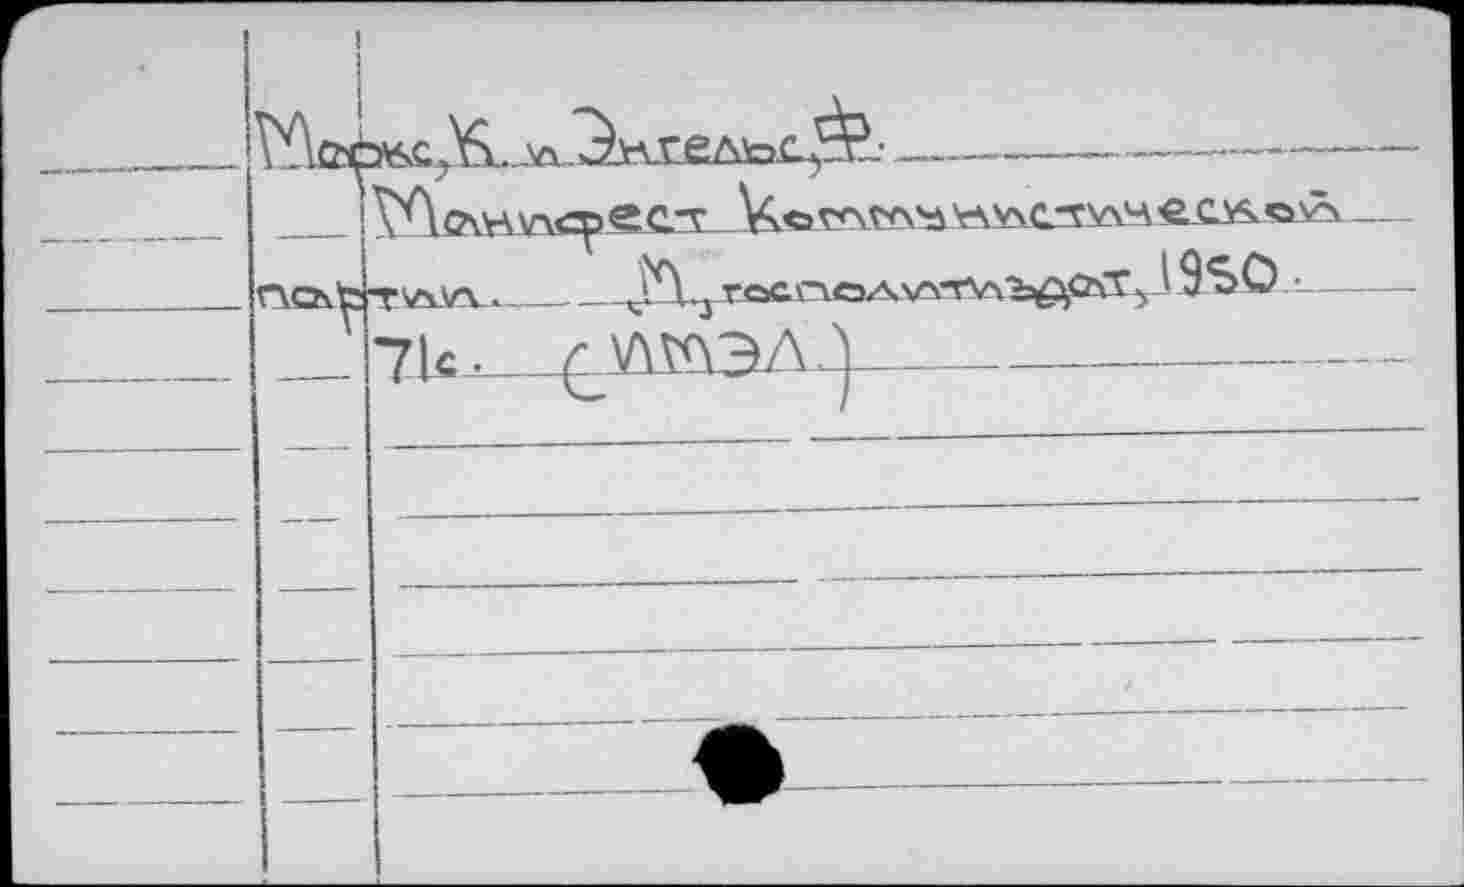 Маркс, К. и Энгельс, Ф.
Манифест Коммунистической
партии. Л., госполитиздат, 1950.
71с. (ИМЭЛ.)